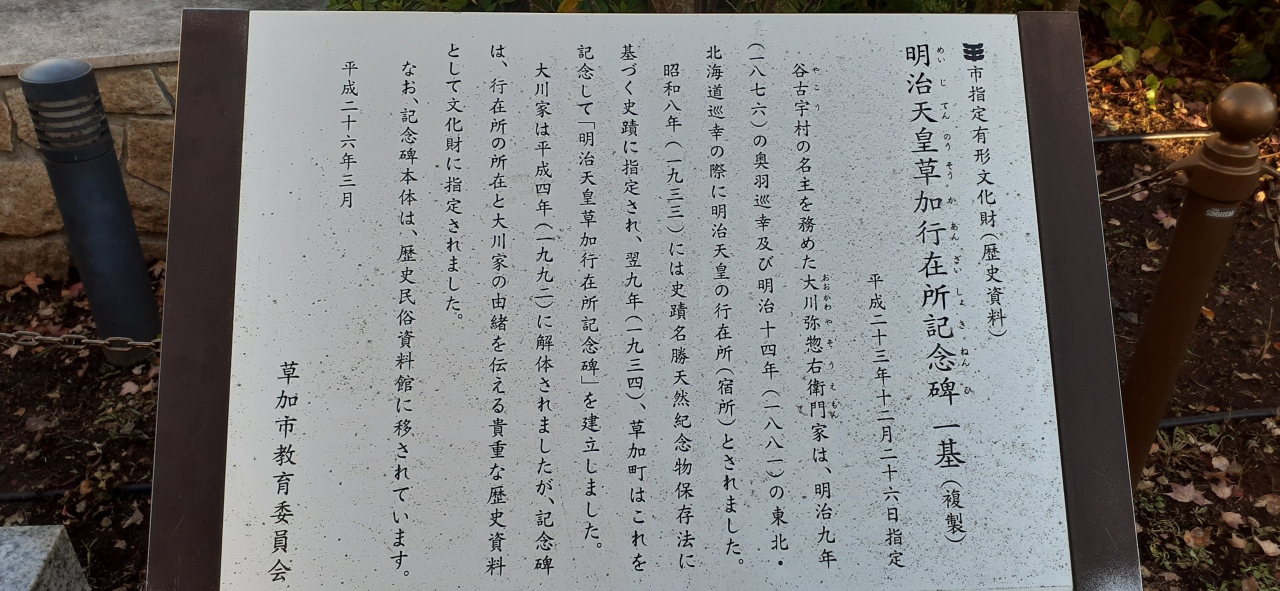 市指定有形文化財（歴史資料）
明治天皇草加行在所記念碑 一基（複製）
めいじてんのうそうかあんざいしょきねんひ
平成二十三年十二月二十六日指定
谷古宇村の名主を務めた大川弥惣右衛門家は、明治九年
やこう おおかわやそうえもん
（一八七六）の奥羽巡幸及び明治十四年（一八八一）の東北・
北海道巡幸の際に明治天皇の行在所（宿所）とされました。
昭和八年（一九三三）には史蹟名勝天然紀念物保存法に
基づく史蹟に指定され、翌九年（一九三四）、草加町はこれを
記念して「明治天皇草加行在所記念碑」を建立しました。
大川家は平成四年（一九九二）に解体されましたが、記念碑
は、行在所の所在と大川家の由緒を伝える貴重な歴史資料
として文化財に指定されました。
なお、記念碑本体は、歴史民俗資料館に移されています。
平成二十六年三月
草加市教育委員会